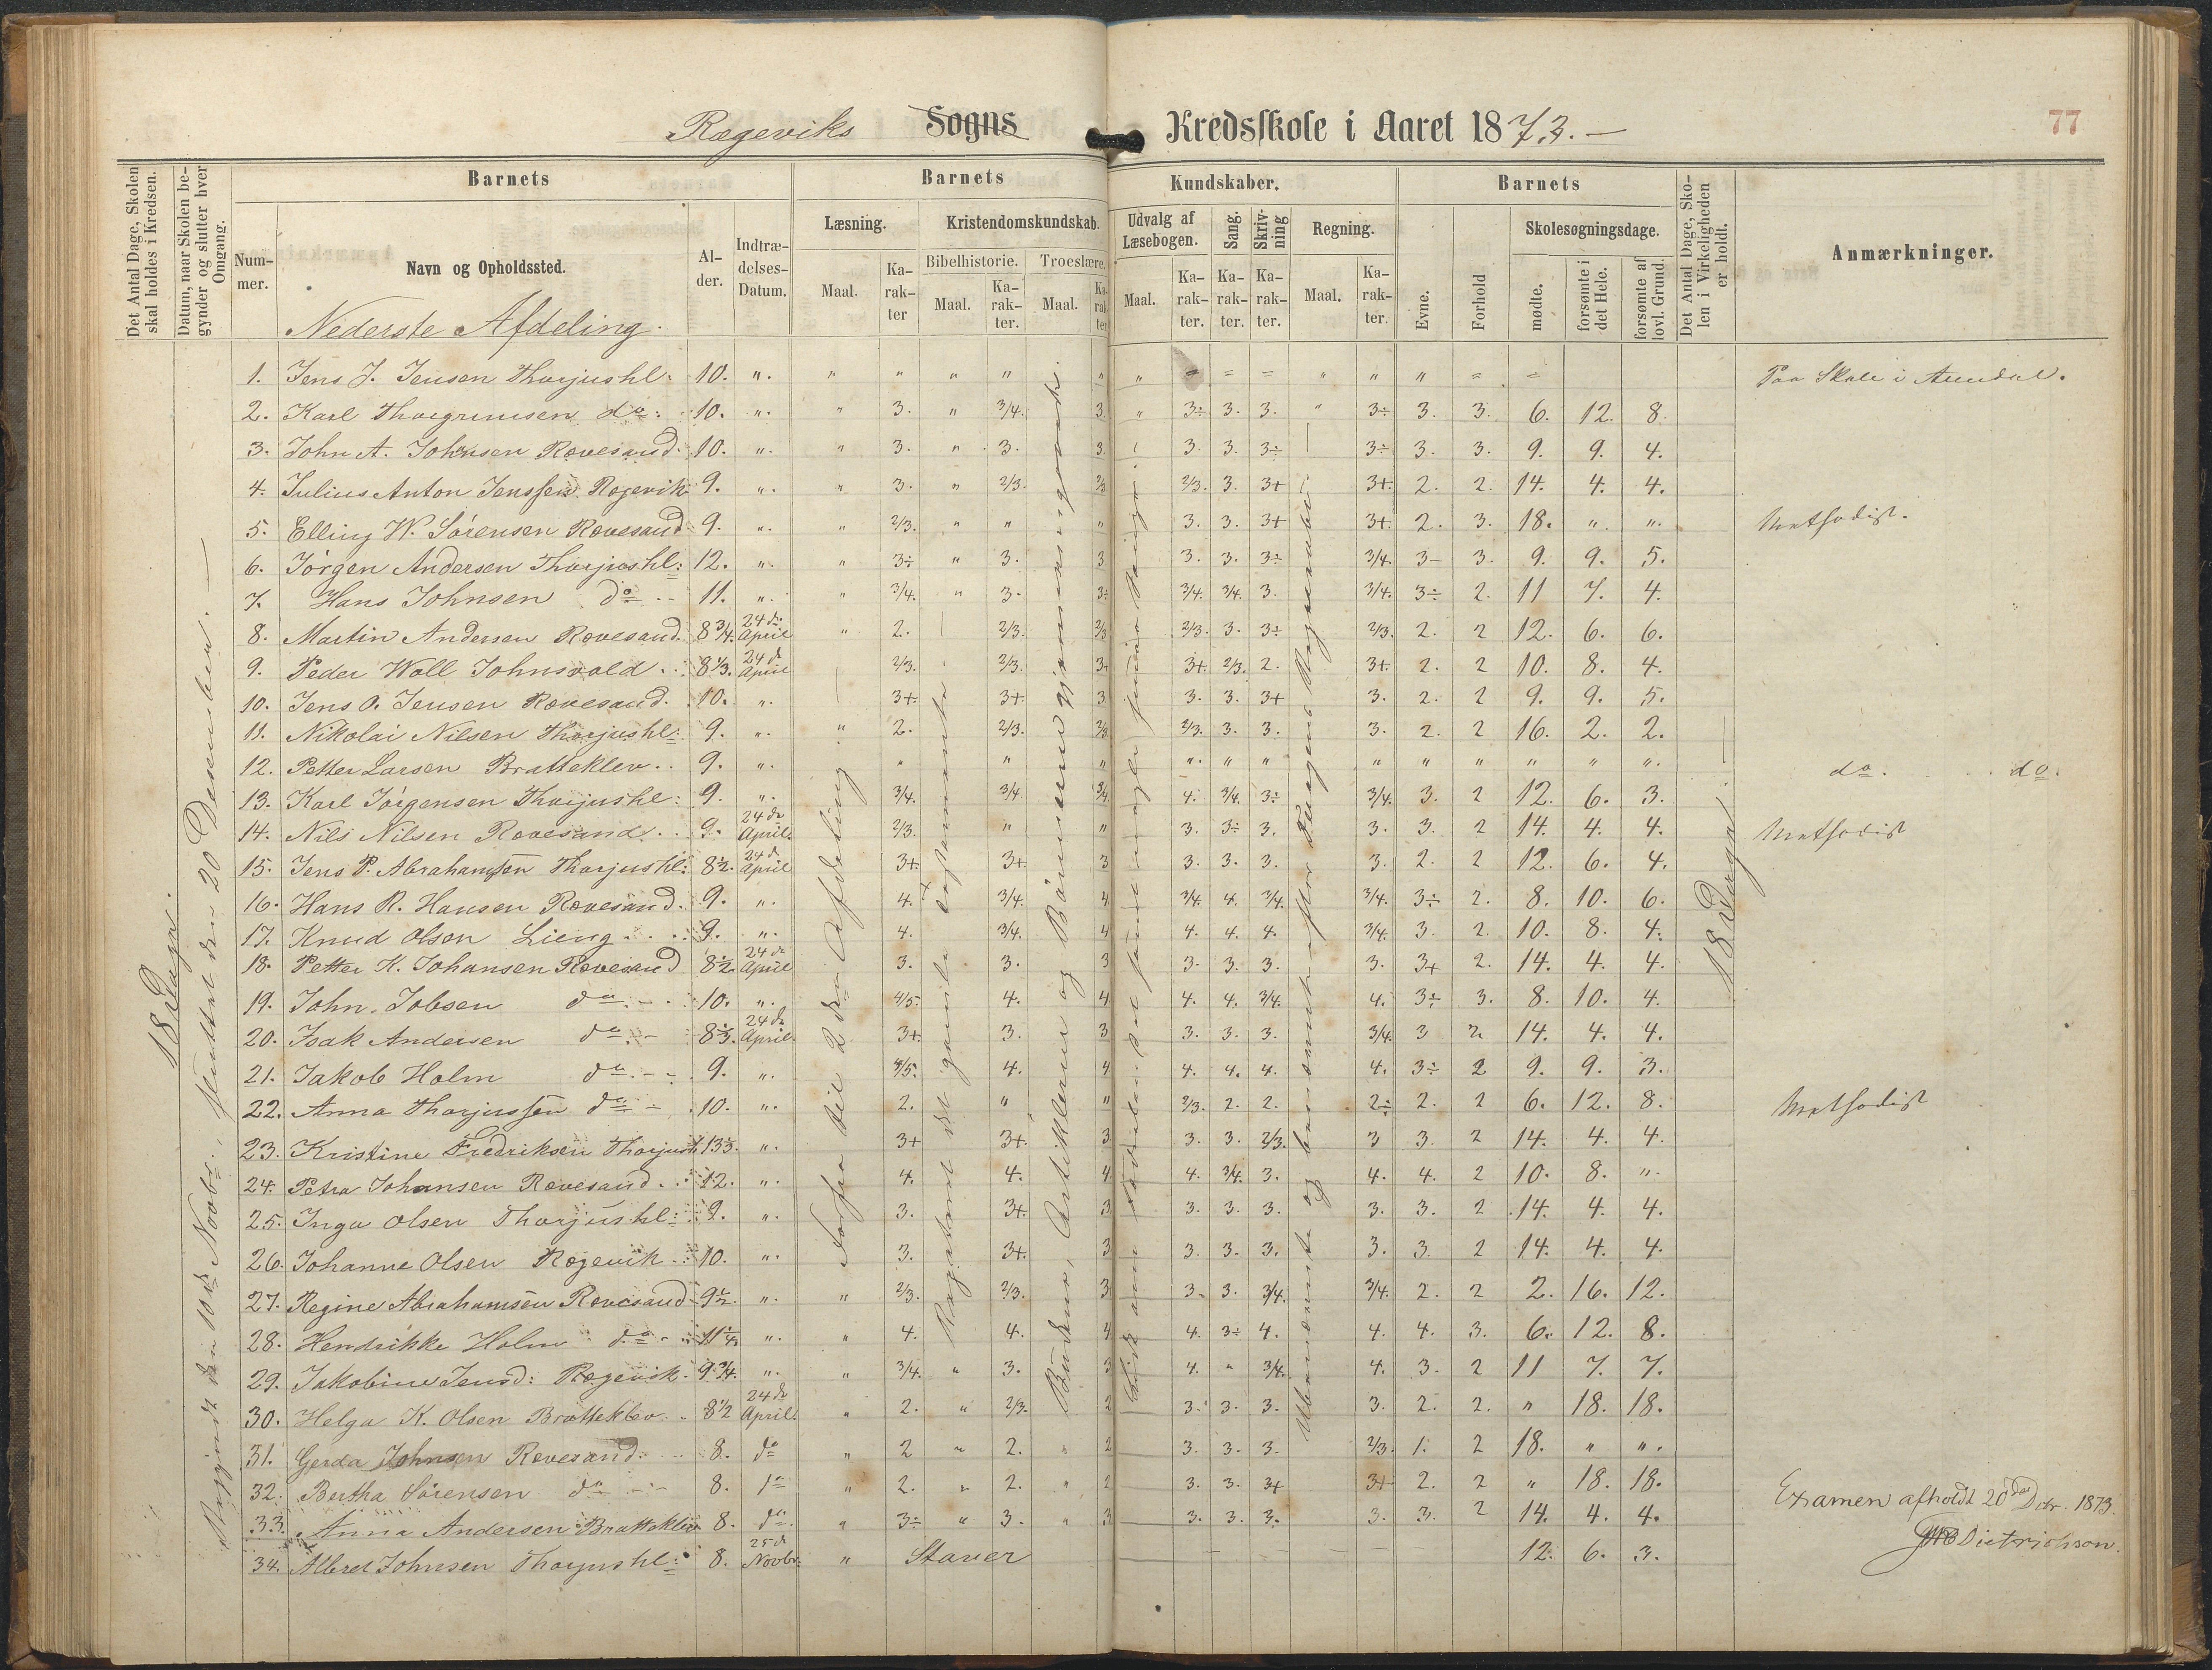 Rægeviks Sogns Kredsskole i Aaret 1873.—
77
Det Antal Dage, Skolen skal holdes i Kredsen.
Datum, naar Skolen begynder og slutter hver Omgang.
Barnets
Nummer.
Navn og Opholdssted.
Alder.
Indtrædelses-Datum.
Barnets
Læsning.
Maal.
Karakter
Kristendomskundskab.
Bibelhistorie.
Maal.
Karakter.
Troeslære.
Maal.
Karakter
Kundskaber.
Udvalg af Læsebogen.
Maal.
Karakter.
Sang.
Karakter.
Skrivning
Karakter.
Regning.
Maal.
Karakter.
Barnets
Evne.
Forhold
Skolesøgningsdage.
mødte.
forsømte i det Hele.
forsømte af lovl. Grund.
Det Antal Dage, Skolen i Virkeligheden er holdt.
Anmærkninger.
Nederste Afdeling.
1. Jens J. Jensen Thorjushl: 10. ". " " " " " " = = = " " " = = Paa Skole i Arendal.
2. Karl Thorgrimsen do: 10. ". " 3. " 3/4. 3. " 3÷ 3. 3. " 3÷ 3. 3. 6. 12. 8.
3. John A. Johnsen Rævesand. 10. ". " 3. " 3. 3. 3. 3. 3÷ 3÷ 3. 3. 9. 9. 4.
4. Julius Anton Jenssen Rægevik 9. ". " 3. " 2/3. 2/3 2/3. 3. 3+ 3+. 2. 2. 14. 4. 4.
5. Elling W. Sörensen Rævesand 9. ". " 2/3. " " " 3. 3. 3+ 3+. 2. 3. 18. ". ". Methodist.
6. Jörgen Andersen Thorjushl: 12. ". " 3÷ " 3. 3 3. 3. 3÷ 3/4. 3– 3. 9. 9. 5.
7. Hans Johnsen do 11. ". " 3/4. " 3. 3÷ 3/4. 3/4. 3. 3/4. 3÷ 2. 11 7. 4.
8. Martin Andersen Rævesand. 8 3/4. 24de April " 2. 2/3. 2/3 2/3. 3. 3÷ 2/3. 2. 2 12. 6. 6.
9. Peder Woll Johnsvold 8 1/3. 24d April 2/3. 2/3. 3+ 3+. 2/3. 2. 3+. 2. 2 10. 8. 4.
10. Jens O. Jensen Rævesand. 10. ". 3+. 3+. 3 3. 3. 3+ 3. 2. 2 9. 9. 5.
11. Nikolai Nilsen Thorjushl: 9. ". " 2. 2/3. 2/3 2/3. 3. 3. 3. 2. 2 16. 2. 2.
12. Petter Larsen Bratteklev. 9. ". " " " ". " " " " " " " ". do. do.
13. Karl Jörgensen Thorjushl: 9. ". 3/4. 3/4. 3/4. 4. 3/4. 3÷ 3/4. 3. 2 12. 6. 3.
14. Nils Nilsen Rævesand. 9. 24de April. 2/3. " " 3. 3÷ 3. 3. 3. 2 14. 4. 4. Methodist
15. Jens P. Abrahamsen Thorjushl: 8 1/2. 24d. April 3+. 3+. 3 3. 3. 3. 3. 2. 2 12. 6. 4.
16. Hans R. Hansen Rævesand. 9. ". 4. 3/4. 4 3/4. 4. 3/4. 3/4. 3÷ 2. 8. 10. 6.
17. Knud Olsen Lieng. 9. ". 4. 3/4. 4 4. 4. 4. 3/4. 3. 2. 10. 8. 4.
18. Petter K. Johansen Rævesand 8 1/2. 24de April 3. 3. 3 3. 3. 3. 3. 3+ 2. 14. 4. 4.
19. John Jobsen do 10. ". 4/5. 4. 4 4. 4. 3/4. 4. 3÷ 3. 8. 10. 4.
20. Isak Andersen do 8 1/3. 24de April. 3+. 3. 3 3. 3. 3. 3/4. 3 2 14. 4. 4.
21. Jakob Holm do 9. ". 4/5. 4. 4 4. 4. 4. 4. 3÷ 2 9. 9. 3.
22. Anna Thorjussen do 10. ". 2. " " 2/3. 2. 2. 2÷ 2. 2 6. 12. 8. Methodist
23. Kristine Fredriksen Thorjush. 13 1/3. ". 3+ 3+. 3 3. 3. 2/3. 3 3. 2 14. 4. 4.
24. Petra Johansen Rævesand. 12. ". 4. 4. 4 4. 3/4. 3. 4. 4. 2 10. 8. ".
25. Inga Olsen Thorjushl: 9. ". 3. 3+. 3 3. 3. 3. 3. 3. 2 14. 4. 4.
26. Johanne Olsen Rægevik. 10. ". 3. 3+. 3 3. 3. 3. 3. 3. 2 14. 4. 4.
27. Regine Abrahamsen Rævesand 9 1/2. ". " 2/3. 2/3. 3 3. 3. 3/4. 3/4. 2. 2 2. 16. 12.
28. Hendrikke Holm do 11 1/4. ". " 4. 4. 4 4. 3÷ 4. 4. 4. 3. 6. 12. 8.
29. Jakobine Jensd: Rægevik. 9 3/4. ". " 3/4. " 3. 3 4. " 3/4. 4. 3. 2 11 7. 7.
30. Helga K. Olsen Bratteklev. 8 1/2 24de April. " 2. " 2/3. 2 3. 3. 3. 3. 2. 2. " 18. 18.
31. Gerda Johnsen Rævesand. 8. do " 2 " 2. " 2 3. 3. 3. 2/3. 1. 2 18. " ".
32. Bertha Sörensen do 8. do " 2. " 2. " 2 3. 3. 3+ 3+ 2. 2 " 18. 18.
33. Anna Andersen Bratteklev 8. do. " 3÷ " 3. " 3 3. 3. 3. 3. 3. 2 14. 4. 4.
34. Albret Johnsen Thorjushl: 8. 25de Novbr. " Staver 12. 6. 3.
18 Dage.
Begyndt den 10de Novbr., sluttet den 20 Desember.
Forfra til 2den Afdeling.
det gamle Testamente
Budene, Artiklerne og Bönnerne gjennemgaaede.
18 Dage.
Examen afholdt 20de Dcbr. 1873.
Dietrichson.